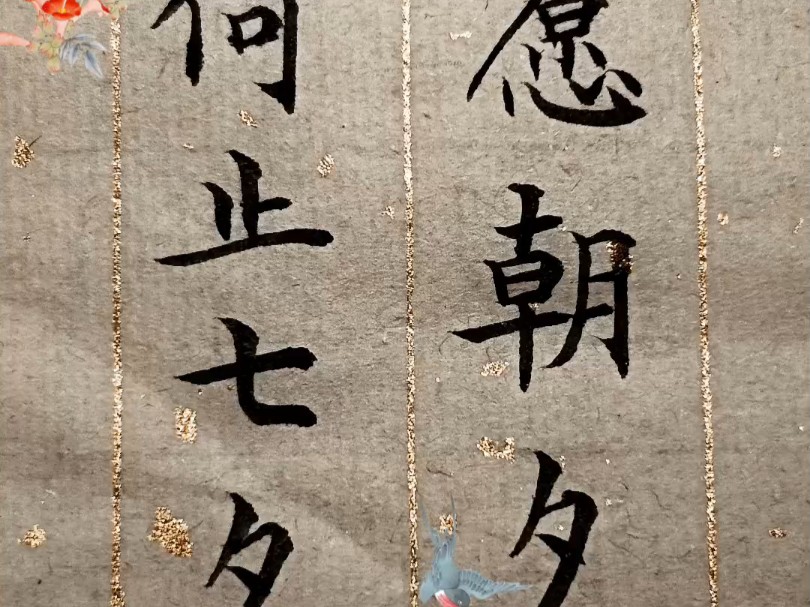 愿朝夕
何止七夕